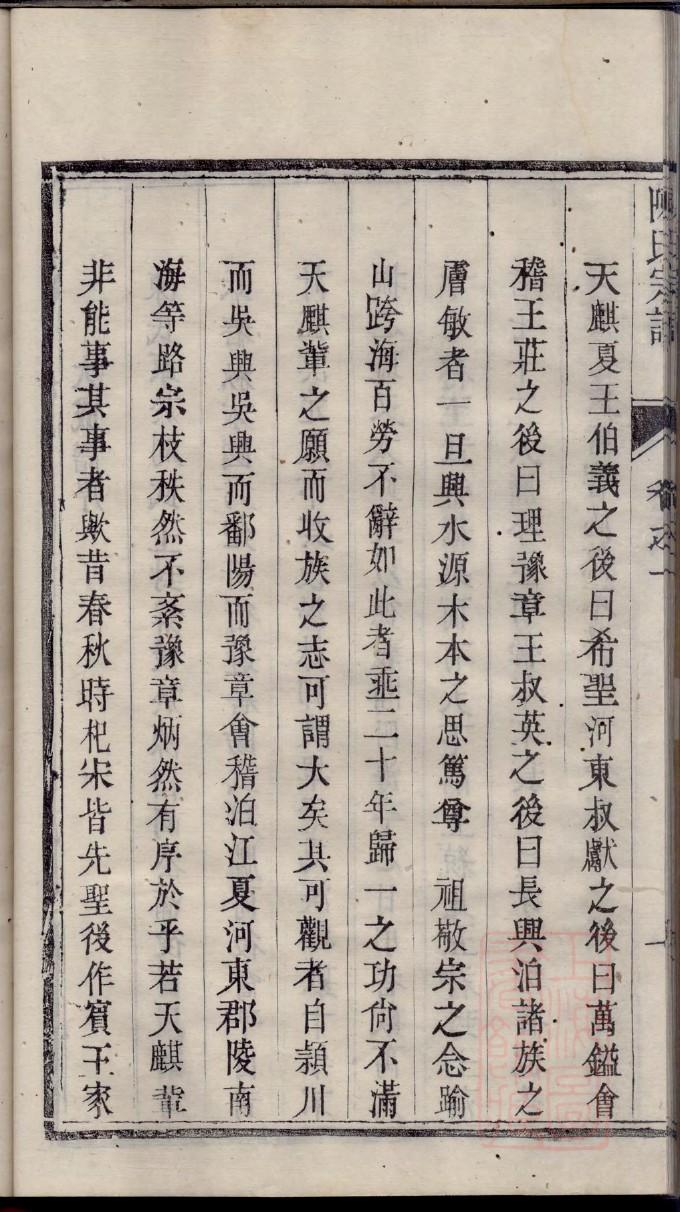 陳氏宗譜
卷之一
天麒夏王伯義之後曰希聖河東叔獻之後曰萬鎰會
稽王莊之後曰理豫章王叔英之後曰長興泊諸族之
膺敏者一旦興水源木本之思篤尊　祖敬宗之念踰
山跨海百勞不辭如此者垂二十年歸一之功尙不滿
天麒輩之願而收族之志可謂大矣其可觀者自潁川
而吳興吳興而鄱陽而豫章會稽泊江夏河東郡陵南
海等路宗枝秩然不紊豫章炳然有序於乎若天麒輩
非能事其事者歟昔春秋時杞宋皆先聖後作賓王家